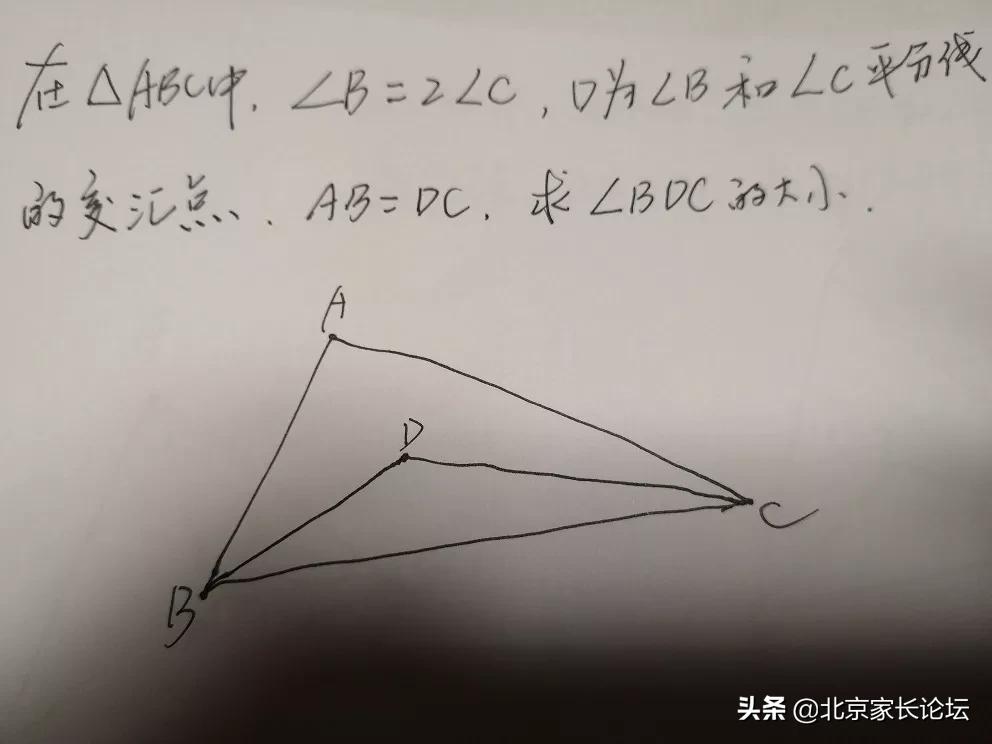 在△ABC中,∠B=2∠C,D为∠B和∠C平分线
的交汇点.AB=DC.求∠BDC的大小.
A
D
C
B
头条 @北京家长论坛